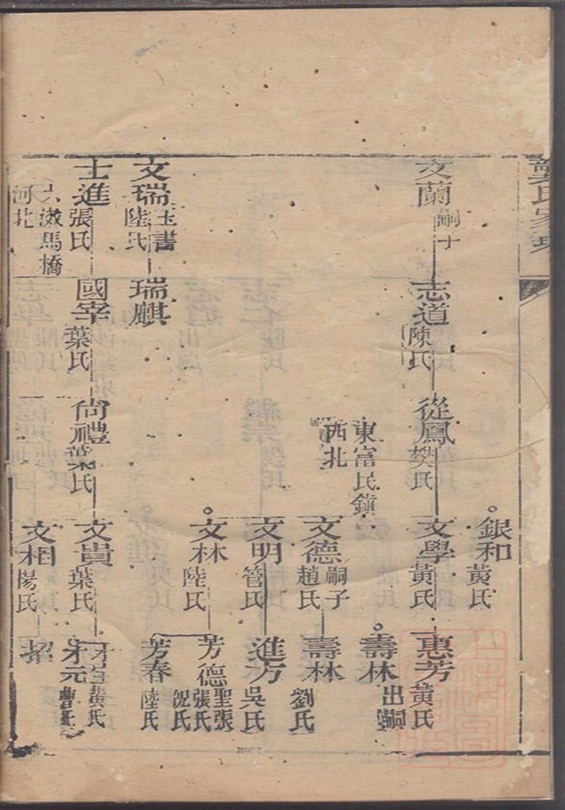 文蘭 嗣十
志道 陳氏
從鳳 樊氏
東富民鎮
西北
銀和 黃氏
文學 黃氏
惠芳 黃氏
壽林 出嗣
文德 嗣子 趙氏
壽林 劉氏
文明 管氏
進方 吳氏
文林 陸氏
芳德 聖張 張氏 倪氏
芳春 陸氏
文瑞 玉書 陸氏
瑞麒
士進 張氏
馬橋
河北
國宰 葉氏
尙禮 葉氏
文貴 葉氏
黃氏
文相 楊氏
招